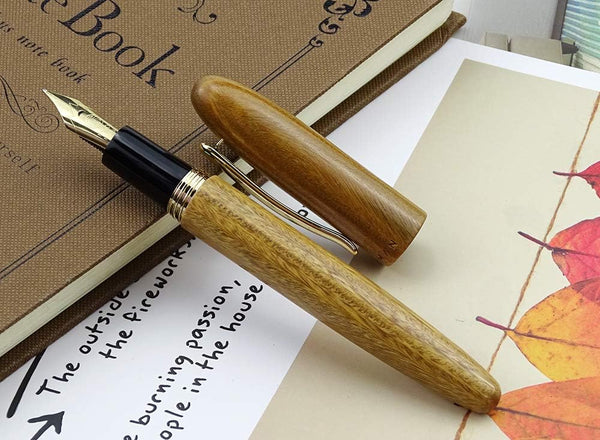 NoteBook
us note book
rself
The outside
the fireworks
e burning passion,
ople in the house